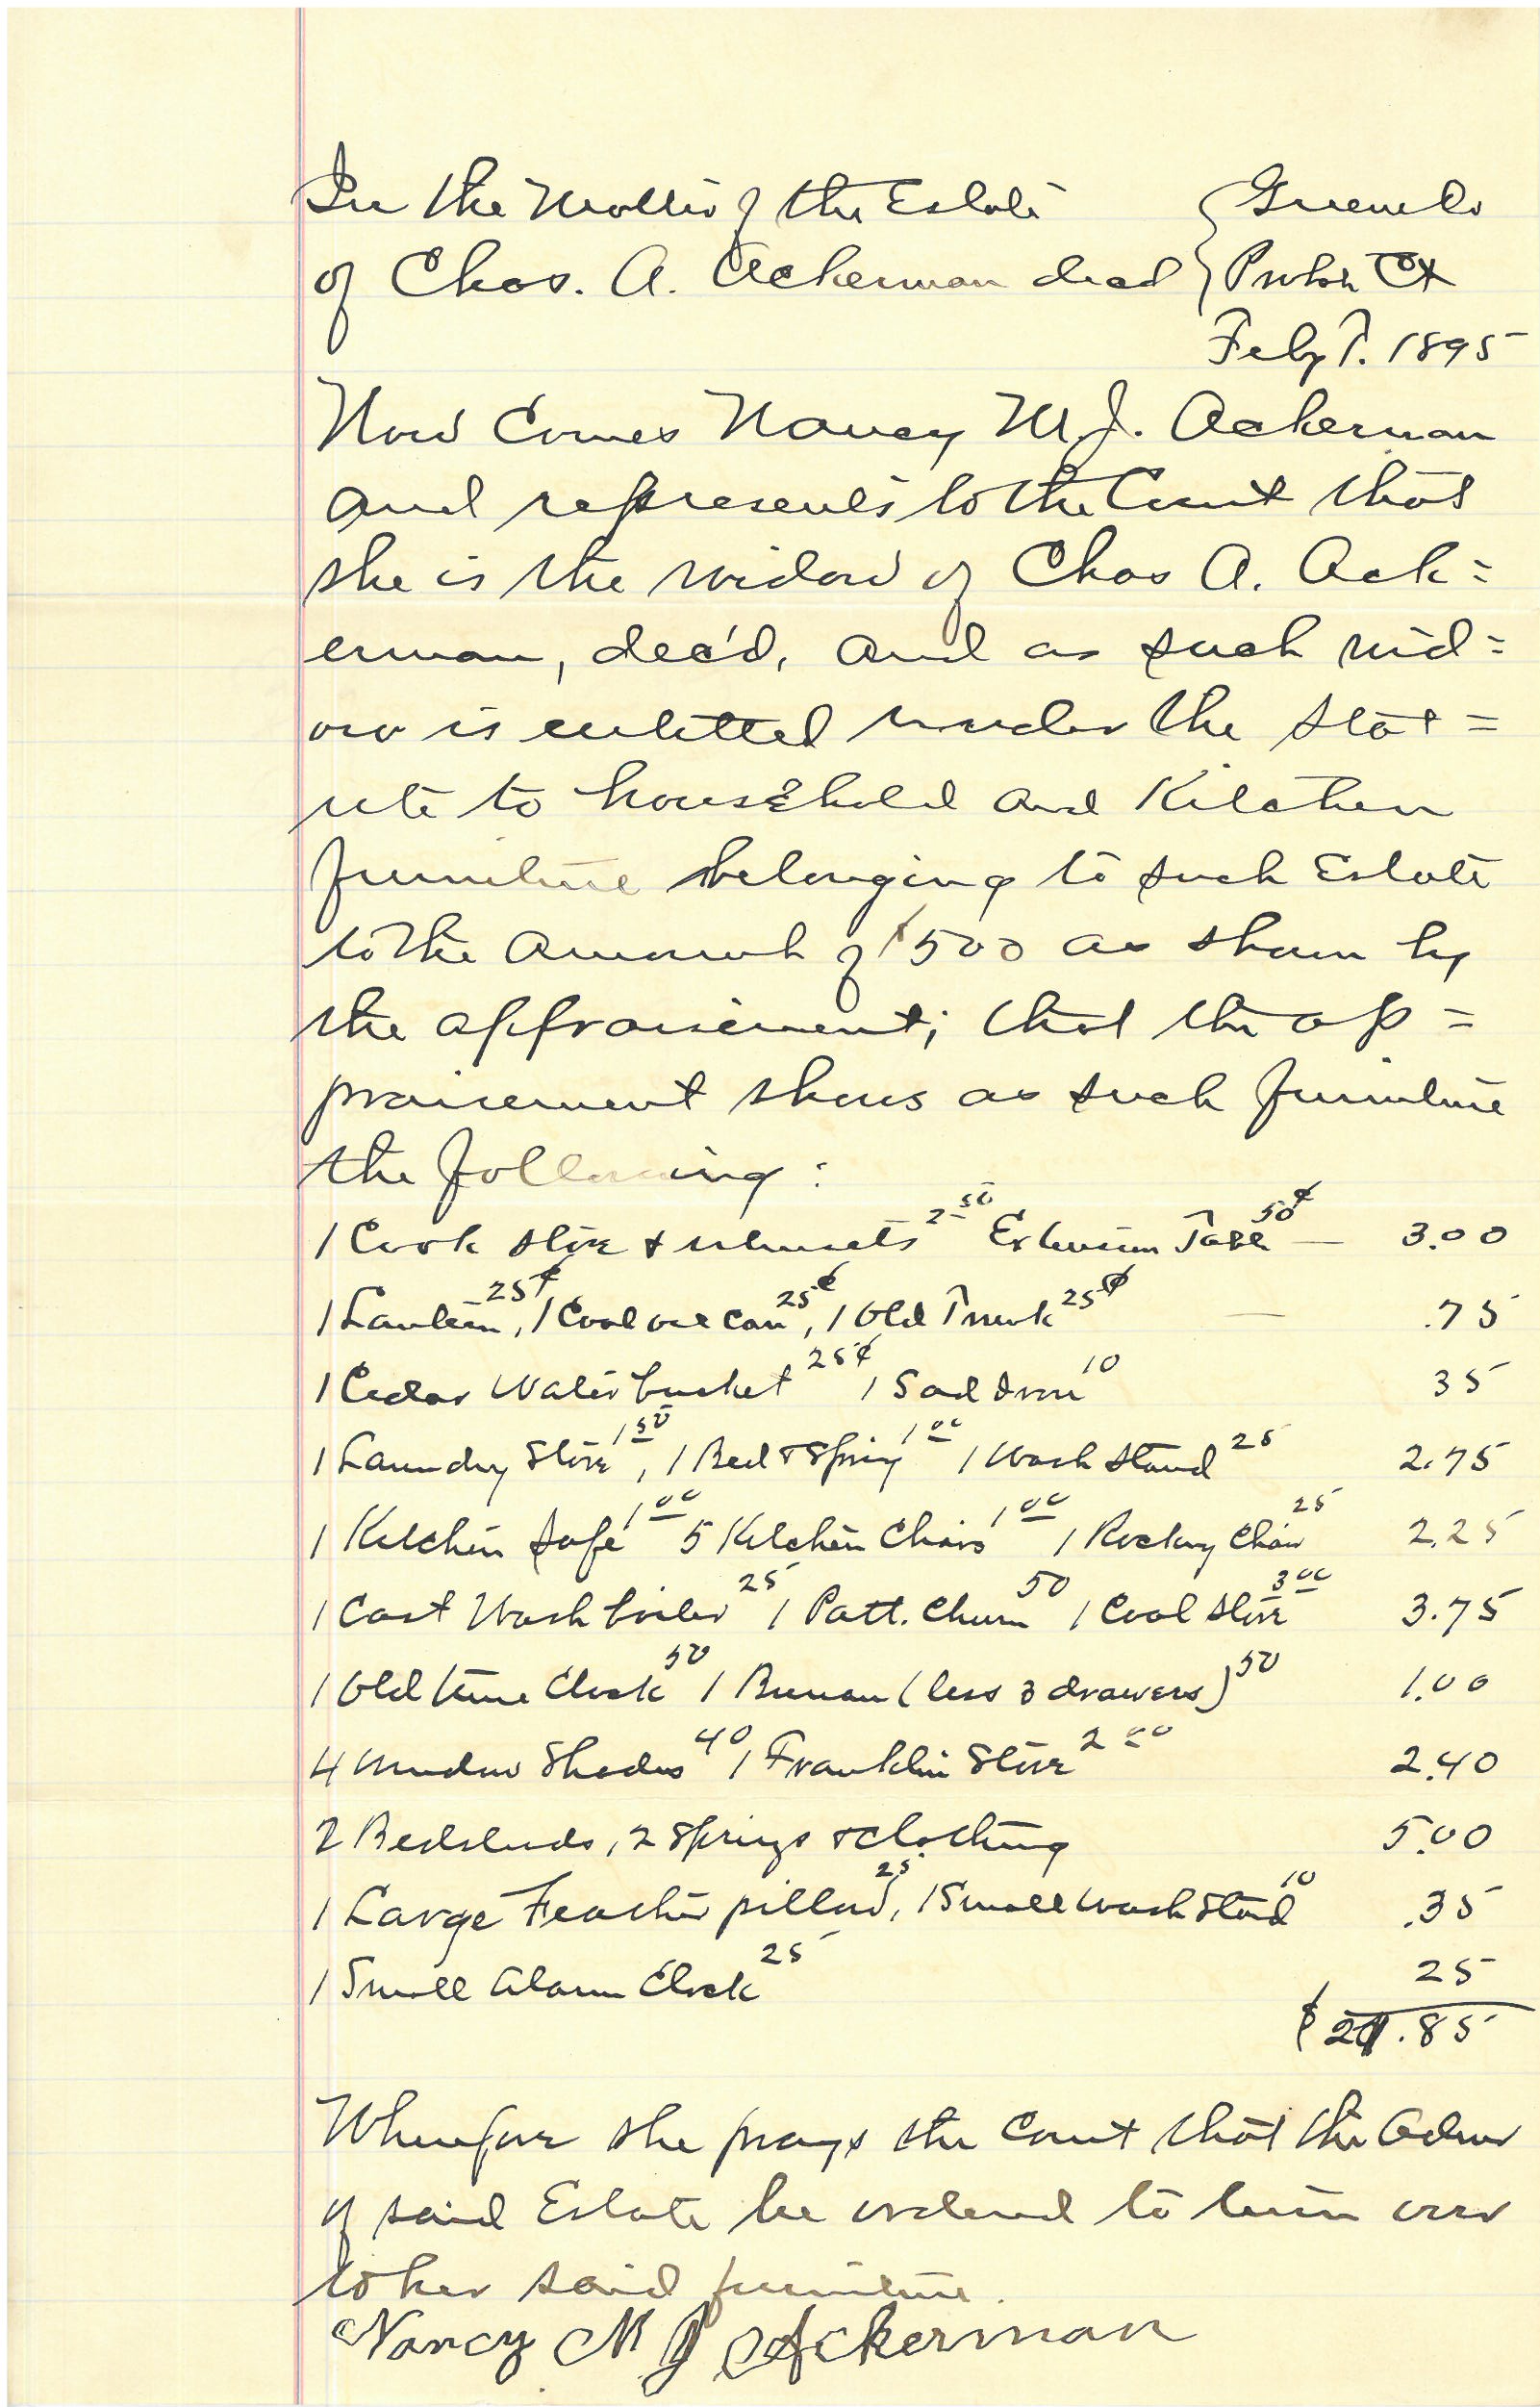 In the Matter of the Estate { Greene Co
of Chas. A. Ackerman decd { Probt Ct
Feby T. 1895
Now Comes Nancy M. J. Ackerman
and represents to the Court that
she is the widow of Chas A. Ack=
erman, dec'd, and as such wid=
ow is entitled under the stat=
ute to household and Kitchen
furniture belonging to such Estate
to the amount of $500 as shown by
the appraisement; that the ap=
praisement shows as such furniture
the following:
1 Cook stove & utensils 2 50 Extension Table 50¢ — 3.00
1 Lantern 25¢, 1 Coal oil can 25¢, 1 Old Trunk 25¢ — .75
1 Cedar Water bucket 25¢ 1 Sad Iron 10 35
1 Laundry Stove 1 50, 1 Bed & Spring 1 00 1 Wash stand 25 2.75
1 Kitchen Safe 1 00 5 Kitchen Chairs 1 00 1 Rocking Chair 25 2.25
1 Cast Wash boiler 25 1 Patt. Churn 50 1 Coal stove 3 00 3.75
1 Old time Clock 50 1 Bureau (less 3 drawers) 50 1.00
4 Window Shades 40 1 Franklin Stove 2 00 2.40
2 Bedsteads, 2 Springs & clothing 5.00
1 Large Feather pillow 25, 1 Small wash Stand 10 .35
1 Small Alarm Clock 25 25
$21.85
Wherefore she prays the Court that the Admr
of said Estate be ordered to turn over
to her said furniture.
Nancy M J Ackerman